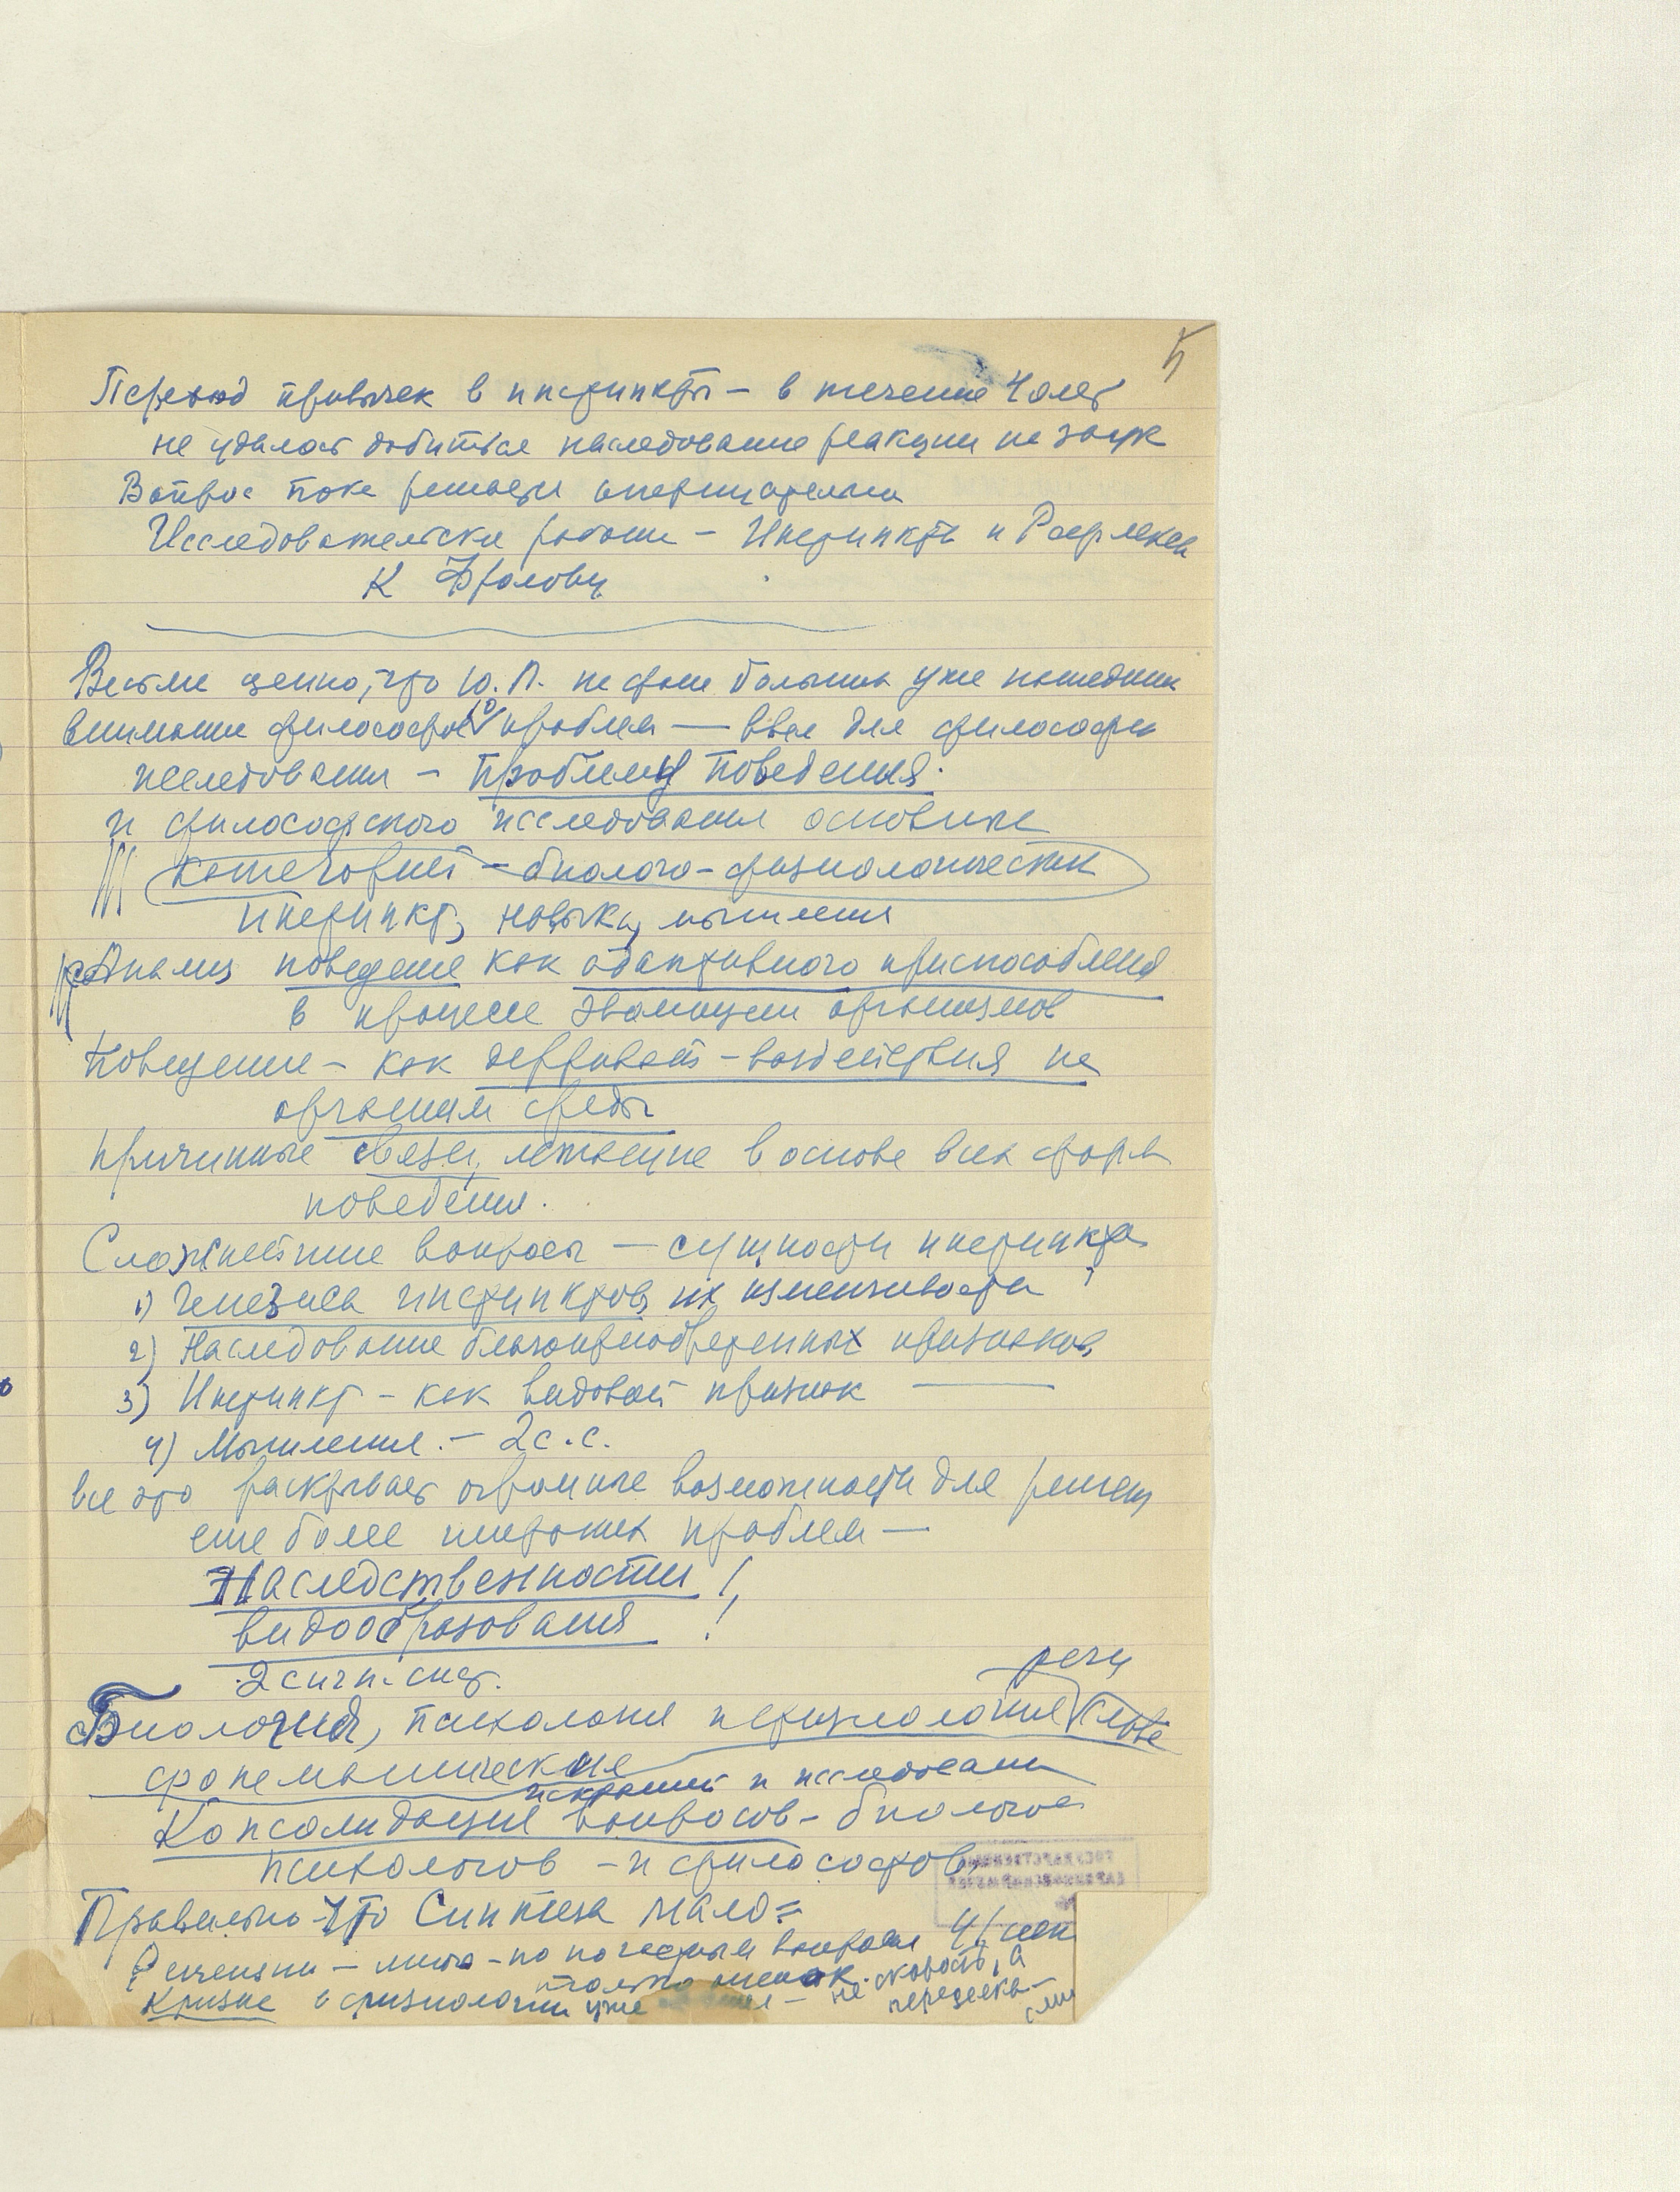 5
Переход привычек в инстинкты — в течение 40 лет
не удалось добиться наследование реакции на звук
Вопрос пока решается отрицательно
Исследовательски работы — Инстинкты и Рефлексы
К Фролову
Весьма ценно, что Ю. П. не нашедших
внимание философов проблем — для философ
исследования — проблемы поведения.
и философского исследования основных
категорий — биолого-физиологических
инстинкт, навыки, мышления
Анализ поведение как адаптивного приспособления
в процессе эволюции организмов
Поведение — как дериват — воздействия на
организм среды
Причинные связи, лежащие в основе всех форм
поведения.
Сложнейшие вопросы — сущности инстинкта
1) Генезиса инстинктов, их изменчивости
2) Наследование благоприобретенных признаков
3) Инстинкт — как видовой признак —
4) Мышления. — 2 с. с.
все это раскрывает огромные возможности для решения
еще более широких проблем —
Наследственности!
видообразования!
2 сигн. сист.
речи
Биология, психология и физиология слова
исканий и исследований
Консолидация вопросов — биологов
психологов — и философов
Правильно что Синтеза мало =
Рецензии — мало — по вопросам
только не скорость, а
Кризис в физиологии уже